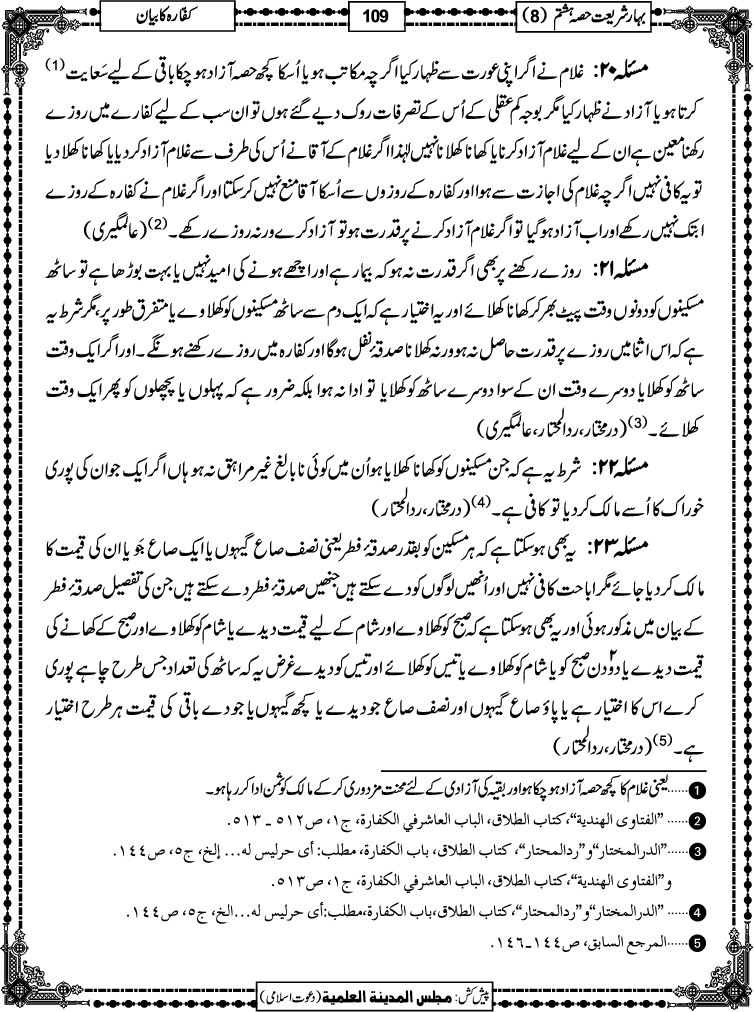 بہار شریعت حصہ ہشتم (8)
109
کفارہ کا بیان
مسئلہ ۲۰: غلام نے اگر اپنی عورت سے ظہار کیا اگرچہ مکاتب ہو یا اُسکا کچھ حصہ آزاد ہو چکا باقی کے لیے سَعایت (1)
کرتا ہو یا آزاد نے ظہار کیا مگر بوجہ کم عقلی کے اُس کے تصرفات روک دیے گئے ہوں تو ان سب کے لیے کفارے میں روزے
رکھنا معین ہے ان کے لیے غلام آزاد کرنا یا کھانا کھلانا نہیں لہٰذا اگر غلام کے آقا نے اُس کی طرف سے غلام آزاد کر دیا یا کھانا کھلا دیا
تو یہ کافی نہیں اگرچہ غلام کی اجازت سے ہوا اور کفارہ کے روزوں سے اُسکا آقا منع نہیں کر سکتا اور اگر غلام نے کفارہ کے روزے
ابتک نہیں رکھے اور اب آزاد ہوگیا تو اگر غلام آزاد کرنے پر قدرت ہو تو آزاد کرے ورنہ روزے رکھے۔ (2) (عالمگیری)
مسئلہ ۲۱: روزے رکھنے پر بھی اگر قدرت نہ ہو کہ بیمار ہے اور اچھے ہونے کی امید نہیں یا بہت بوڑھا ہے تو ساٹھ
مسکینوں کو دونوں وقت پیٹ بھر کر کھانا کھلائے اور یہ اختیار ہے کہ ایک دم سے ساٹھ مسکینوں کو کھلاوے یا متفرق طور پر، مگر شرط یہ
ہے کہ اس اثنا میں روزے پر قدرت حاصل نہ ہو ورنہ کھلانا صدقۂ نفل ہوگا اور کفارہ میں روزے رکھنے ہونگے۔ اور اگر ایک وقت
ساٹھ کو کھلایا دوسرے وقت ان کے سوا دوسرے ساٹھ کو کھلایا تو ادا نہ ہوا بلکہ ضرور ہے کہ پہلوں یا پچھلوں کو پھر ایک وقت
کھلائے۔ (3) (درمختار، ردالمحتار، عالمگیری)
مسئلہ ۲۲: شرط یہ ہے کہ جن مسکینوں کو کھانا کھلایا ہو اُن میں کوئی نابالغ غیر مراہق نہ ہو ہاں اگر ایک جوان کی پوری
خوراک کا اُسے مالک کر دیا تو کافی ہے۔ (4) (درمختار، ردالمحتار)
مسئلہ ۲۳: یہ بھی ہو سکتا ہے کہ ہر مسکین کو بقدر صدقۂ فطر یعنی نصف صاع گیہوں یا ایک صاع جَو یا ان کی قیمت کا
مالک کر دیا جائے مگر اباحت کافی نہیں اور اُنھیں لوگوں کو دے سکتے ہیں جنھیں صدقۂ فطر دے سکتے ہیں جن کی تفصیل صدقۂ فطر
کے بیان میں مذکور ہوئی اور یہ بھی ہو سکتا ہے کہ صبح کو کھلاوے اور شام کے لیے قیمت دیدے یا شام کو کھلاوے اور صبح کے کھانے کی
قیمت دیدے یا دو۲ دن صبح کو یا شام کو کھلاوے یا تیس کو کھلائے اور تیس کو دیدے غرض یہ کہ ساٹھ کی تعداد جس طرح چاہے پوری
کرے اس کا اختیار ہے یا پاؤ صاع گیہوں اور نصف صاع جو دیدے یا کچھ گیہوں یا جو دے باقی کی قیمت ہر طرح اختیار
ہے۔ (5) (درمختار، ردالمحتار)
1 ......یعنی غلام کا کچھ حصہ آزاد ہو چکا ہو اور بقیہ کی آزادی کے لئے محنت مزدوری کر کے مالک کو ثمن ادا کر رہا ہو۔
2 ...... "الفتاوی الھندیة"، کتاب الطلاق، الباب العاشر في الکفارة، ج۱، ص۵۱۲ ـ ۵۱۳.
3 ......"الدرالمختار" و"ردالمحتار"، کتاب الطلاق، باب الکفارة، مطلب: أی حرلیس له... إلخ، ج۵، ص۱۴۴.
و"الفتاوی الھندیة"، کتاب الطلاق، الباب العاشر في الکفارة، ج۱، ص۵۱۳.
4 ...... "الدرالمختار" و"ردالمحتار"، کتاب الطلاق، باب الکفارة، مطلب: أی حرلیس له...الخ، ج۵، ص۱۴۴.
5 ......المرجع السابق، ص۱۴۴ـ۱۴۶.
پیش کش: مجلس المدینة العلمیة (دعوت اسلامی)